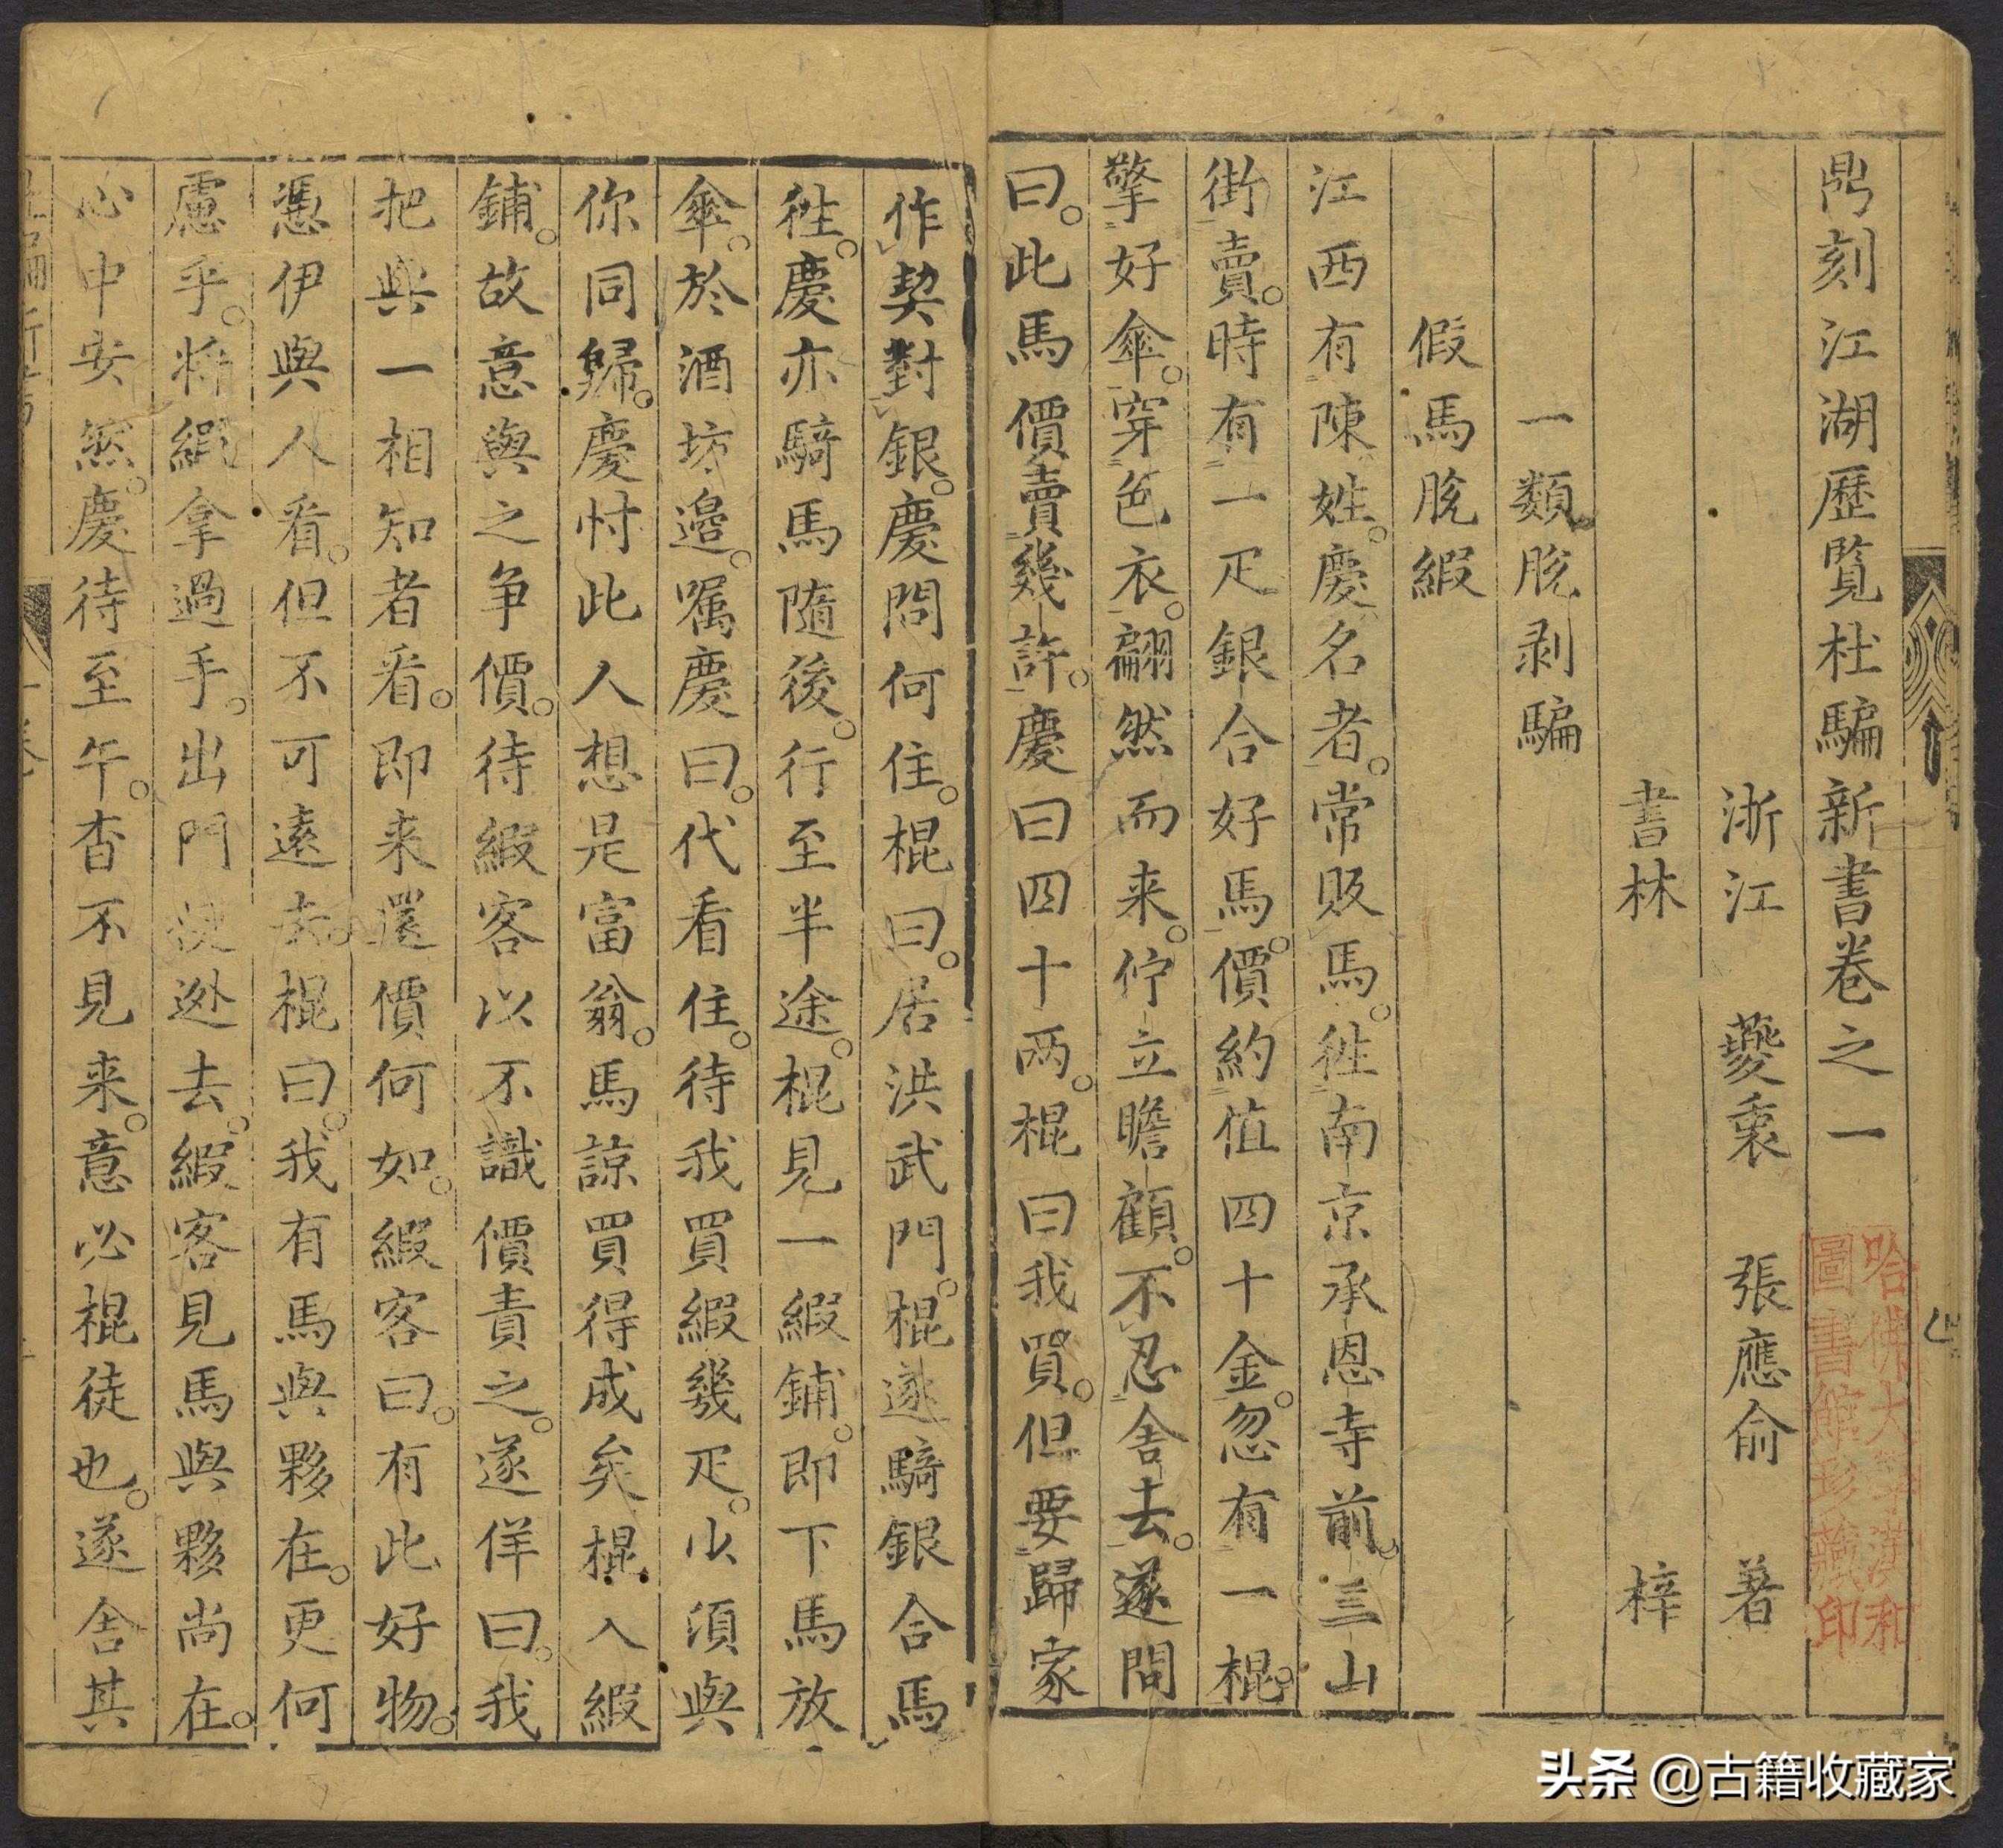 鼎刻江湖歷覽杜騙新書卷之一
浙江 夔衷 張應俞 著
書林 梓
一類脫剥騙
假馬脫緞
江西有陳姓。慶名者。常販馬。徃南京承恩寺前。三山
街賣。時有一疋銀合好馬。價約值四十金。忽有一棍。
擎好傘。穿色衣。翩然而来。佇立瞻顧。不忍舍去。遂問
曰。此馬價賣幾許。慶曰四十两。棍曰我買。但要歸家
作契對銀。慶問何住。棍曰。居洪武門。棍遂騎銀合馬
徃。慶亦騎馬隨後。行至半途。棍見一緞鋪。即下馬放
傘。於酒坊邉。嘱慶曰。代看住。待我買緞幾疋。少須與
你同歸。慶忖此人想是富翁。馬諒買得成矣棍入緞
鋪。故意與之争價。待緞客以不識價責之。遂佯曰。我
把與一相知者看。即来還價何如。緞客曰。有此好物。
憑伊與人看。但不可遠去。棍曰。我有馬與夥在。更何
慮乎。将緞拿過手。出門便逊去。緞客見馬與夥尚在。
心中安然。慶待至午。杳不見来。意必棍徒也。遂舍其
哈佛大學漢和
圖書館珍藏印
头条 @古籍收藏家